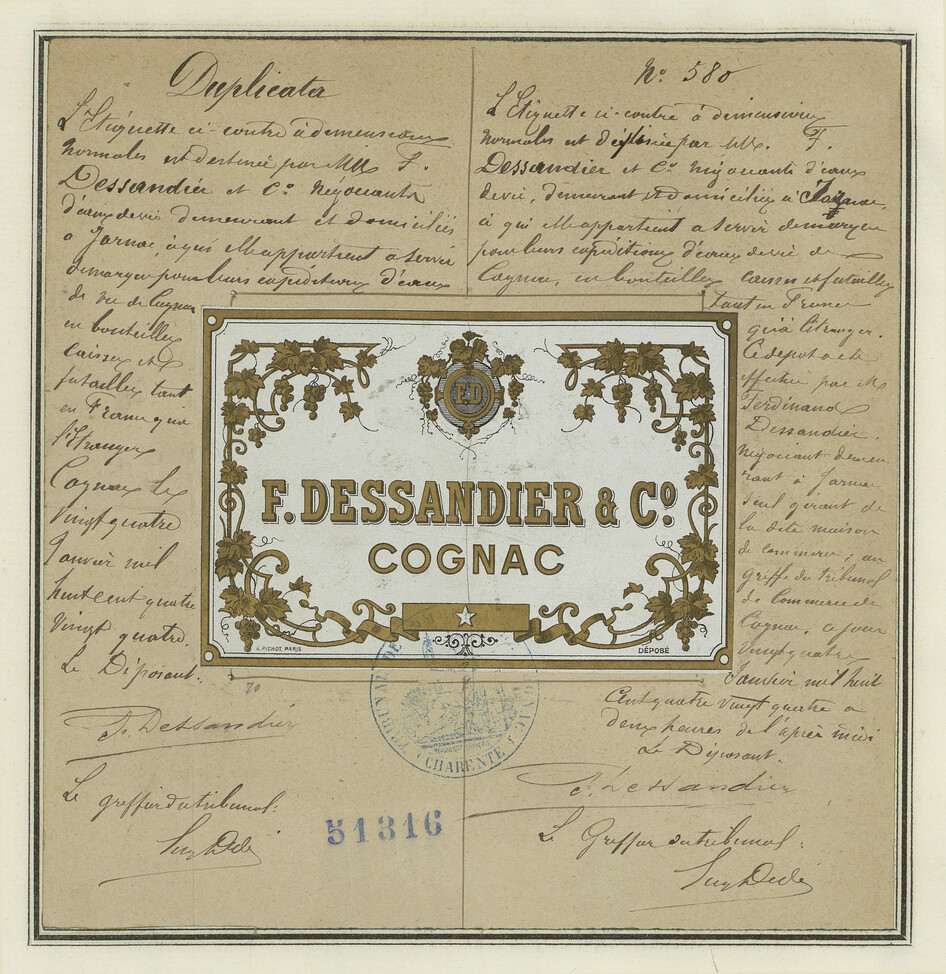 Duplicata
L'Etiquette ci-contre à demensions
Normales est destinée par MM F.
Dessandier et Cº Négociants
d'eaux de vie demeurant et domiciliés
à Jarnac à qui elle appartient a servir
de marque pour leurs expéditions d'eaux
de vie de Cognac
en bouteilles
caisses et
futailles tant
en France qu'à
l'Etranger
Cognac le
Vingt quatre
Janvier mil
huit cent quatre
Vingt quatre.
Le Déposant.
F. Dessandier
Le greffier du tribunal:
Nº 580
L'Etiquette ci-contre à dimensions
Normales est déposée par MM. F.
Dessandier et Cº Négociants d'eaux
de vie, demeurant et domiciliés à Jarnac,
à qui elle appartient a servir de marque
pour leurs expéditions d'eaux de vie de
Cognac, en bouteilles caisses et futailles
tant en France
qu'à l'étranger.
Ce dépot a été
effectué par M
Ferdinand
Dessandier.
Négociant demeu
rant à Jarnac
seul gérant de
la dite maison
de commerce; au
greffe du tribunal
de Commerce de
Cognac, ce jour
Vingt quatre
Janvier mil huit
Cent quatre vingt quatre a
deux heures de l'après midi
Le Déposant.
F. Dessandier
Le Greffier du tribunal:
FD
F. DESSANDIER & Cº
COGNAC
G. PICHOT PARIS
DÉPOSÉ
70
TRIBUNAL DE
COGNAC
CHARENTE
51316